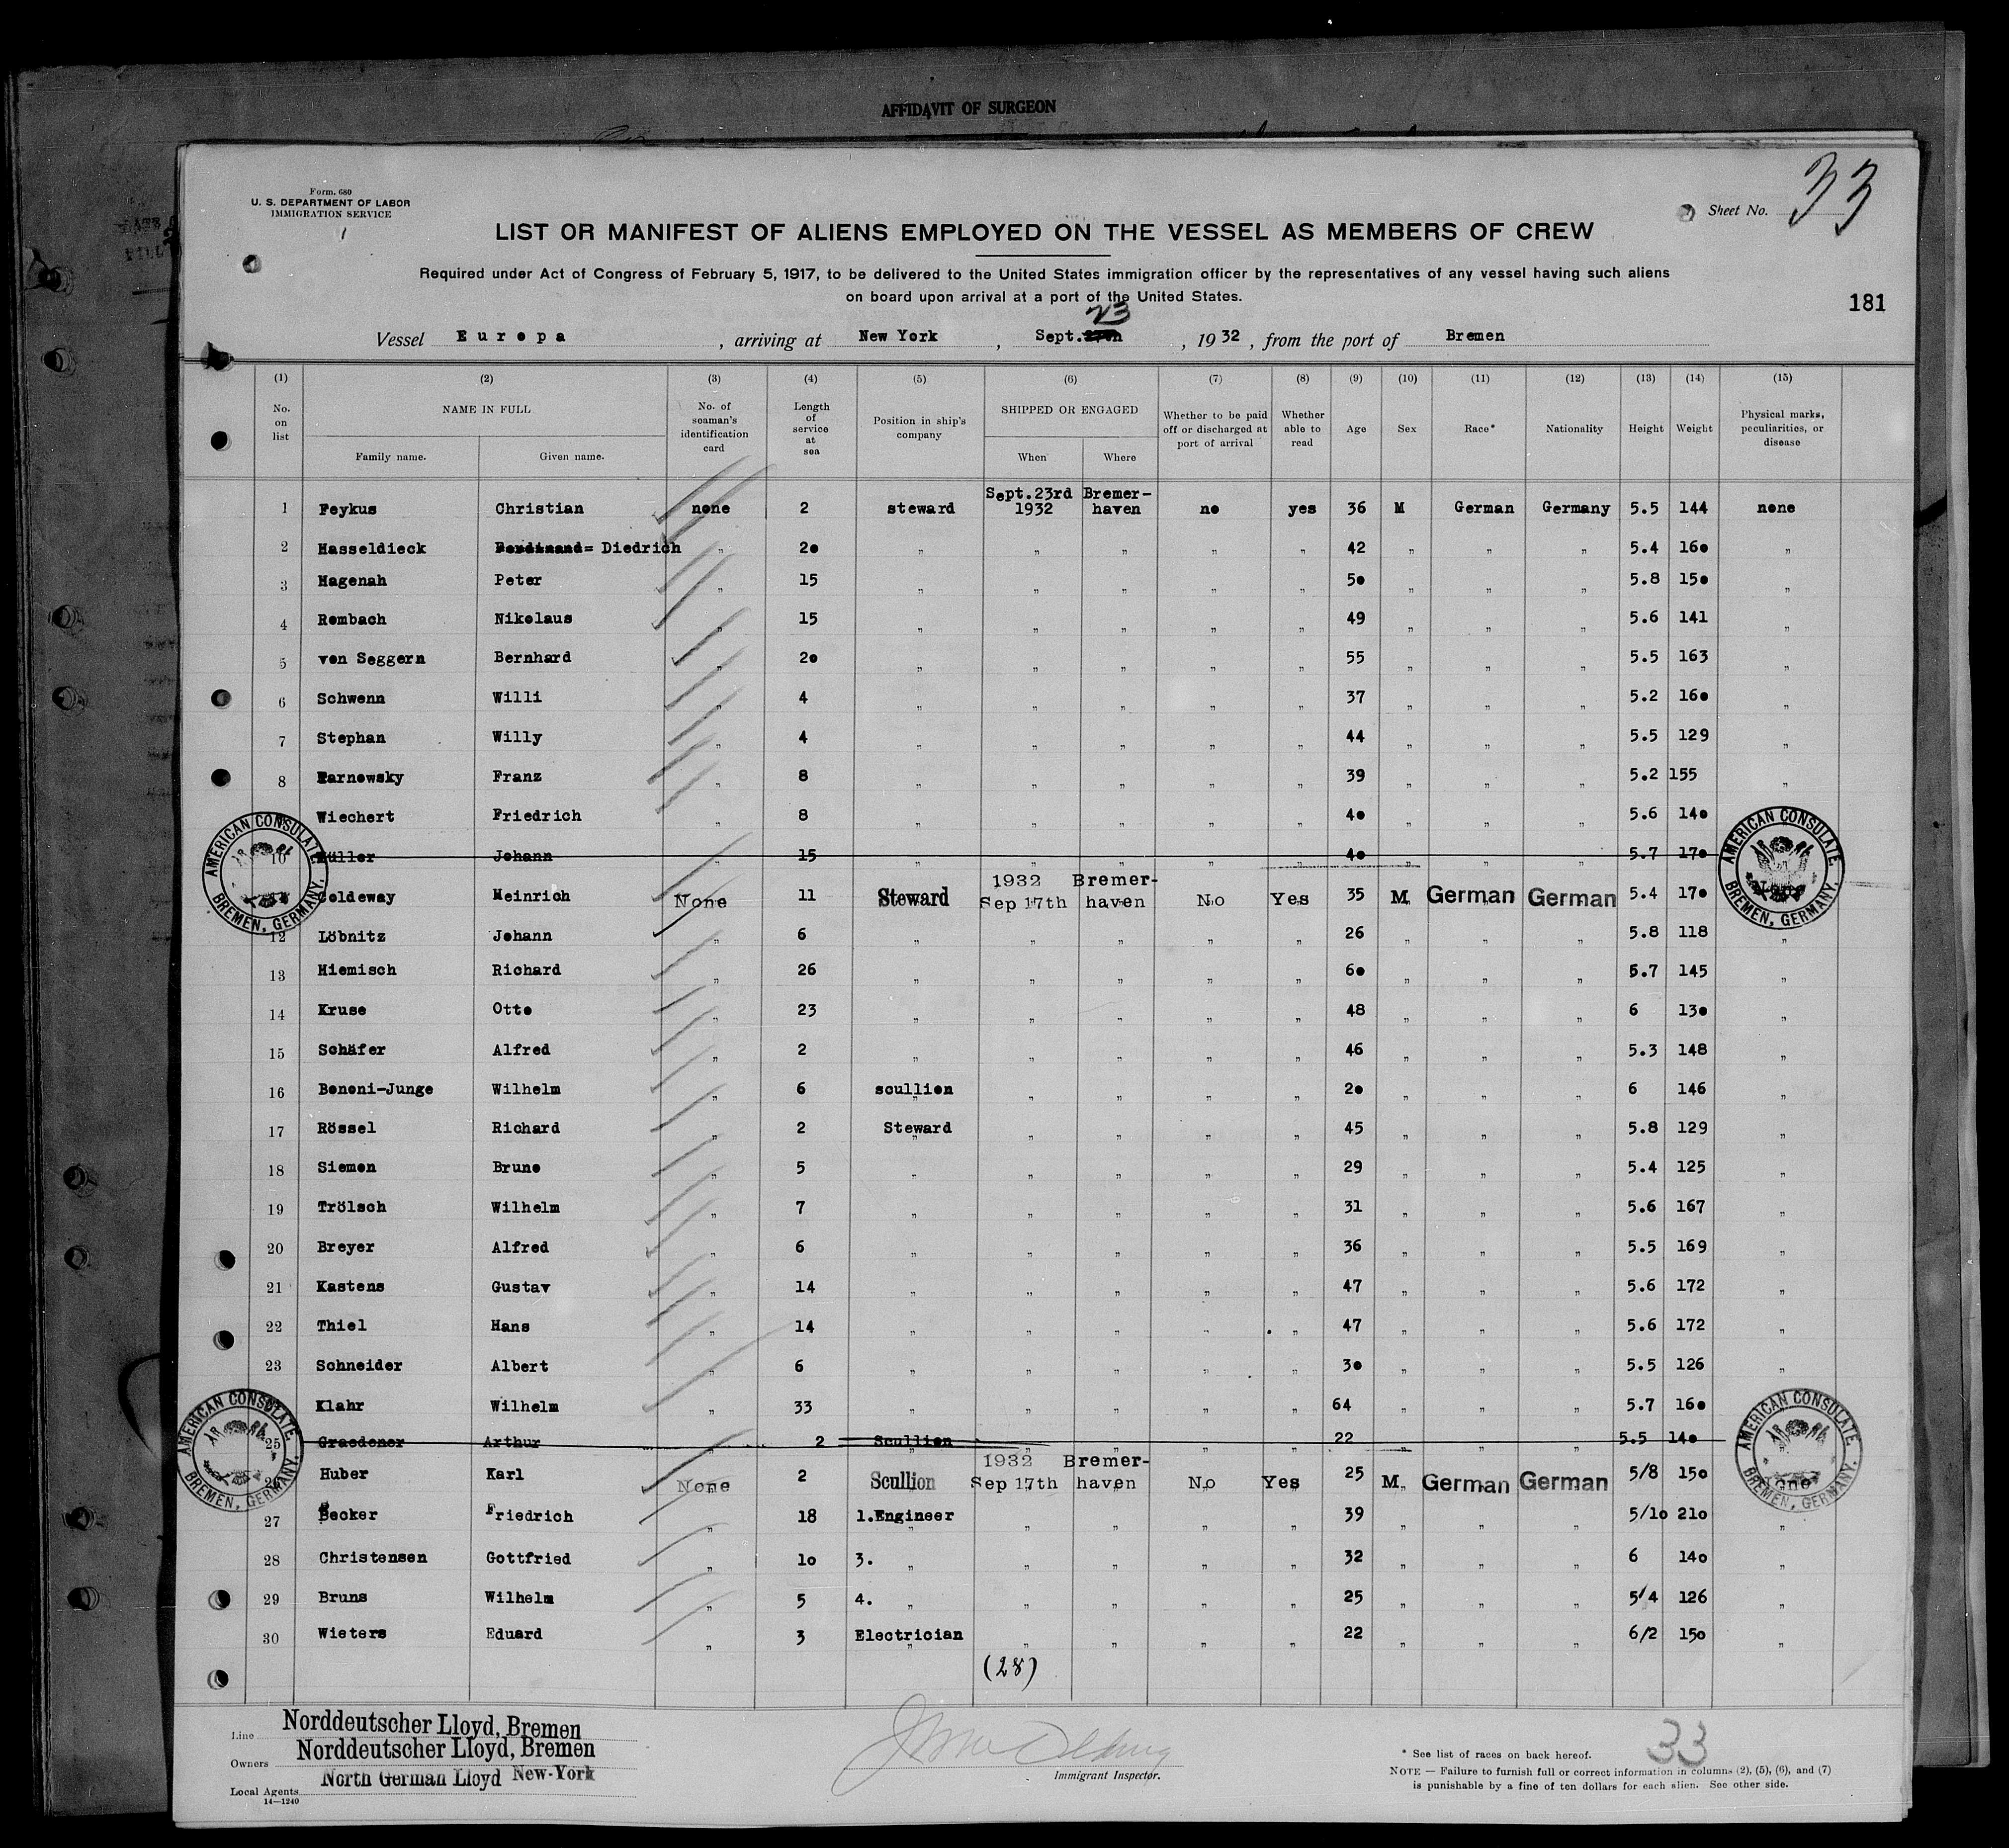 AFFIDAVIT OF SURGEON
33
Form. 680
U. S. DEPARTMENT OF LABOR
IMMIGRATION SERVICE
Sheet No.
LIST OR MANIFEST OF ALIENS EMPLOYED ON THE VESSEL AS MEMBERS OF CREW
Required under Act of Congress of February 5, 1917, to be delivered to the United States immigration officer by the representatives of any vessel having such aliens
on board upon arrival at a port of the United States.
181
23
Vessel Europa , arriving at New York , Sept. , 1932 , from the port of Bremen
(1) (2) (3) (4) (5) (6) (7) (8) (9) (10) (11) (12) (13) (14) (15)
No. on list NAME IN FULL Family name. Given name. No. of seaman's identification card Length of service at sea Position in ship's company SHIPPED OR ENGAGED When Where Whether to be paid off or discharged at port of arrival Whether able to read Age Sex Race* Nationality Height Weight Physical marks, peculiarities, or disease
1 Feykus Christian none 2 steward Sept.23rd 1932 Bremer-haven no yes 36 M German Germany 5.5 144 none
2 Hasseldieck Ferdinand= Diedrich „ 20 „ „ „ „ „ 42 „ „ „ 5.4 160 „
3 Hagenah Peter „ 15 „ „ „ „ „ 50 „ „ „ 5.8 150 „
4 Rombach Nikolaus „ 15 „ „ „ „ „ 49 „ „ „ 5.6 141 „
5 von Seggern Bernhard „ 20 „ „ „ „ „ 55 „ „ „ 5.5 163 „
6 Schwenn Willi „ 4 „ „ „ „ „ 37 „ „ „ 5.2 160 „
7 Stephan Willy „ 4 „ „ „ „ „ 44 „ „ „ 5.5 129 „
8 Parnowsky Franz „ 8 „ „ „ „ „ 39 „ „ „ 5.2 155 „
Wiechert Friedrich „ 8 „ „ „ „ „ 40 „ „ „ 5.6 140 „
10 Müller Johann „ 15 „ „ „ „ „ 40 „ „ „ 5.7 170
AMERICAN CONSULATE BREMEN, GERMANY.
AMERICAN CONSULATE BREMEN, GERMANY.
Coldewey Heinrich None 11 Steward 1932 Sep 17th Bremer-haven No Yes 35 M German German 5.4 170 None
12 Löbnitz Johann „ 6 „ „ „ „ „ 26 „ „ „ 5.8 118 „
13 Hiemisch Richard „ 26 „ „ „ „ „ 60 „ „ „ 5.7 145 „
14 Kruse Otto „ 23 „ „ „ „ „ 48 „ „ „ 6 130 „
15 Schäfer Alfred „ 2 „ „ „ „ „ 46 „ „ „ 5.3 148 „
16 Benoni-Junge Wilhelm „ 6 scullion „ „ „ „ 20 „ „ „ 6 146 „
17 Rössel Richard „ 2 Steward „ „ „ „ 45 „ „ „ 5.8 129 „
18 Siemon Bruno „ 5 „ „ „ „ „ 29 „ „ „ 5.4 125 „
19 Trölsch Wilhelm „ 7 „ „ „ „ „ 31 „ „ „ 5.6 167 „
20 Breyer Alfred „ 6 „ „ „ „ „ 36 „ „ „ 5.5 169 „
21 Kastens Gustav „ 14 „ „ „ „ „ 47 „ „ „ 5.6 172 „
22 Thiel Hans „ 14 „ „ „ „ „ 47 „ „ „ 5.6 172 „
23 Schneider Albert „ 6 „ „ „ „ „ 30 „ „ „ 5.5 126 „
Klahr Wilhelm „ 33 „ „ „ „ „ 64 „ „ „ 5.7 160 „
25 Graedener Arthur „ 2 Scullion „ „ „ „ 22 „ „ „ 5.5 140
AMERICAN CONSULATE BREMEN, GERMANY.
AMERICAN CONSULATE BREMEN, GERMANY.
Huber Karl None 2 Scullion 1932 Sep 17th Bremer-haven No Yes 25 M German German 5/8 150 None
27 Becker Friedrich „ 18 1.Engineer „ „ „ „ 39 „ „ „ 5/10 210 „
28 Christensen Gottfried „ 10 3. „ „ „ „ „ 32 „ „ „ 6 140 „
29 Bruns Wilhelm „ 5 4. „ „ „ „ „ 25 „ „ „ 5/4 126 „
30 Wieters Eduard „ 3 Electrician „ „ „ „ 22 „ „ „ 6/2 150 „
(28)
Line Norddeutscher Lloyd, Bremen
Owners Norddeutscher Lloyd, Bremen
Local Agents North German Lloyd New-York
14—1240
Immigrant Inspector.
33
* See list of races on back hereof.
NOTE — Failure to furnish full or correct information in columns (2), (5), (6), and (7)
is punishable by a fine of ten dollars for each alien. See other side.